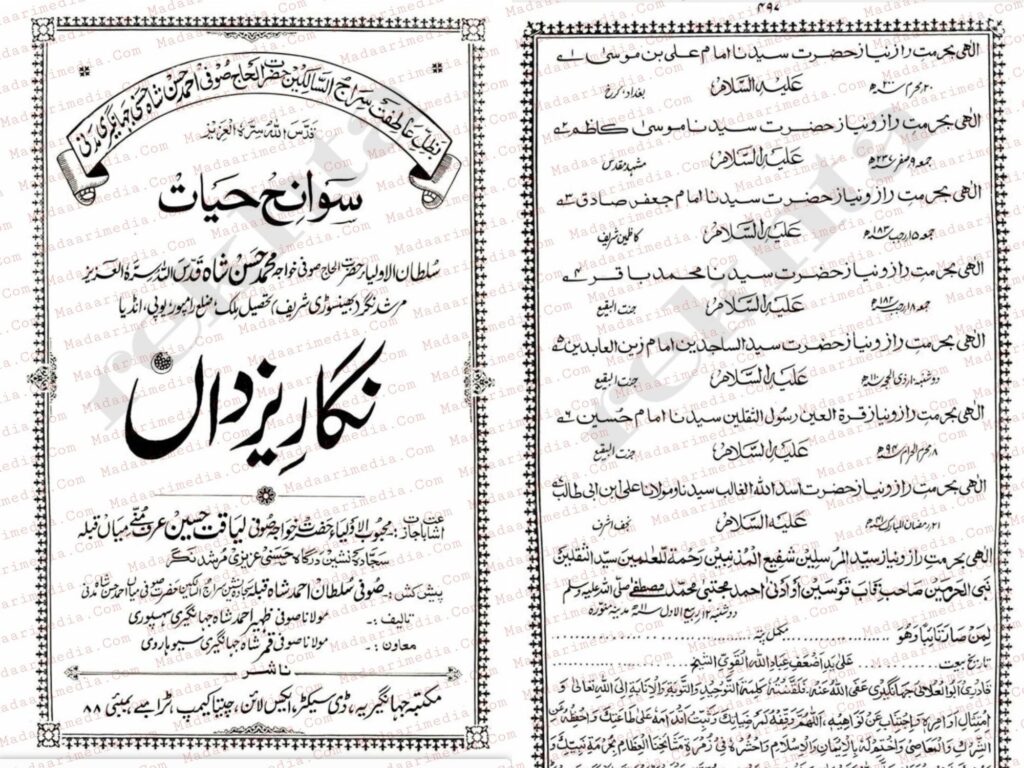 بظل عاطفت سراج السالکین حضرت الحاج صوفی احمد حسن شاہ حسنی جہانگیری مدنی
قدس اللہ سرہ العزیز
سوانح حیات
سلطان الاولیاء حضرت الحاج صوفی خواجہ محمد حسن شاہ قدس اللہ سرہ العزیز
مرشد نگر دبھینسوڑی شریف) تحصیل ملک ضلع رامپور یوپی، انڈیا
نگارِ یزداں
محبوب الاولیاء حضرت خواجہ صوفی لیاقت حسین عرف میاں قبلہ
سجادہ نشین درگاہ حسنی عزیزی مرشد نگر
پیش کش :۔ صوفی سلطان احمد شاہ قبلہ
تالیف :۔ مولانا صوفی ظہیر احمد شاہ جہانگیری سہسپوری
معاون :۔ مولانا صوفی قمر شاہ جہانگیری سیوہاروی
ناشر
مکتبہ جہانگیریہ، ڈی سیکٹر، ایکس لائن، چیتا کیمپ، ٹرامبے بمبئی ۸۸
۴۹۷
الٰہی بحرمتِ راز و نیاز حضرت سیدنا امام علی بن موسیٰ
علیہ السلام
الٰہی بحرمتِ راز و نیاز حضرت سیدنا موسیٰ کاظم
جمعہ ۹ صفر ۲۳۷ھ علیہ السلام مشہد مقدس
الٰہی بحرمتِ راز و نیاز حضرت سیدنا امام جعفر صادق
جمعہ ۱۵ رجب ۱۸۳ھ علیہ السلام کاظمین شریف
الٰہی بحرمتِ راز و نیاز حضرت سیدنا محمد باقر
علیہ السلام جنت البقیع
الٰہی بحرمتِ راز و نیاز حضرت سید الساجدین امام زین العابدین
دوشنبہ علیہ السلام جنت البقیع
الٰہی بحرمتِ راز و نیاز قرۃ العین رسول الثقلین سیدنا امام حسین
محرم الحرام علیہ السلام جنت البقیع
الٰہی بحرمتِ راز و نیاز حضرت اسد اللہ الغالب سیدنا و مولانا علی ابن ابی طالب
۲۱ رمضان المبارک علیہ السلام نجف اشرف
الٰہی بحرمتِ راز و نیاز سید المرسلین شفیع المذنبین رحمۃ للعلمین سید الثقلین
نبی الحرمین صاحب قاب قوسین او ادنیٰ احمد مجتبیٰ محمد مصطفےٰ صلی اللہ علیہ وسلم
دوشنبہ ۱۲ ربیع الاول ۱۱ھ مدینہ منورہ
لمن صار تائبا وھو مکمل پتہ
تاریخ بیعت علیٰ ید اضعف عباد اللہ القوی الشیخ
قادری ابو العلائی جہانگیری عفی اللہ عنہ، فلقنتہ کلمۃ التوحید والتوبۃ والانابۃ الی اللہ تعالیٰ و
امتثال اوامرہ واجتناب عن نواھیہ، اللھم وفقہ لمرضیاتک وثبت اقدامہ علی طاعتک واحفظہ عن
الشرک والمعاصی واختم لہ بالایمان والاسلام واحشرہ فی زمرۃ مشائخنا العظام بحرمۃ نبیک و
Madaarimedia.Com
rekhta